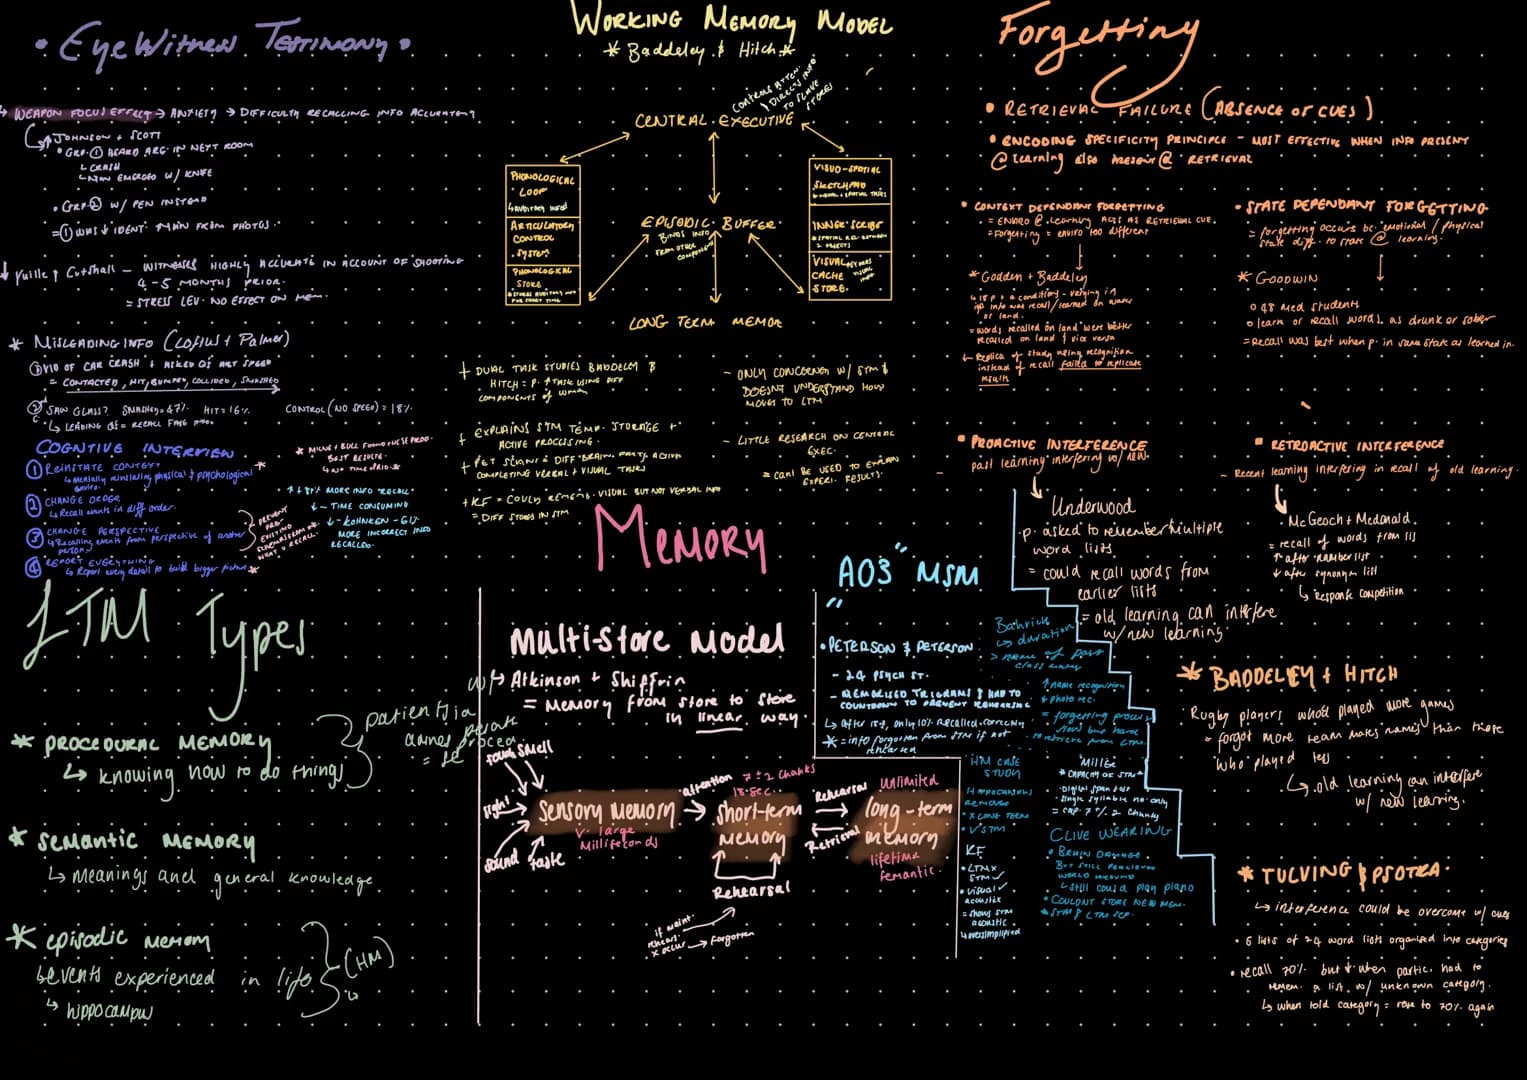 • EyeWitness Testimony •
↳ WEAPON FOCUS EFFECT → ANXIETY → DIFFICULTY RECALLING INFO ACCURATELY
JOHNSON + SCOTT
• GRP. ① HEARD ARG. IN NEXT ROOM
↳ CRASH
↳ MAN EMERGED W/ KNIFE
• GRP ② W/ PEN INSTEAD
= ① WAS ↓ IDENT. MAN FROM PHOTOS.
Yuille + Cutshall – WITNESSES HIGHLY ACCURATE IN ACCOUNT OF SHOOTING
4-5 MONTHS PRIOR.
= STRESS LEV. NO EFFECT ON MEM.
* MISLEADING INFO (Loftus + Palmer)
① VID OF CAR CRASH + ASKED QS ABT SPEED
= CONTACTED, HIT, BUMPED, COLLIDED, SMASHED
② SAW GLASS? SMASHED = 47% HIT = 16% CONTROL (NO SPEED) = 18%
↳ LEADING QS = RECALL
COGNTIVE INTERVIEW
① REINSTATE CONTEXT *
↳ Mentally reinstating physical & psychological
enviro.
② CHANGE ORDER
↳ Recall events in diff order.
③ CHANGE PERSPECTIVE
↳ Recalling events from perspective of another
person
④ REPORT EVERYTHING
↳ Report every detail to build bigger picture *
PREVENT
EXISTING
* MILNE + BULL FOUND THESE PROD.
BEST RESULTS
↑ 81% MORE INFO RECALL
↓ – TIME CONSUMING
↓ – KOHNKEN –
MORE INCORRECT INFO
RECALLED.
WORKING MEMORY MODEL
* Baddeley & Hitch *
CONTROLS ATTEN.
& DIRECTS INFO
TO SLAVE
STORES
CENTRAL EXECUTIVE
PHONOLOGICAL
LOOP
↳ AUDITORY INFO
ARTICULATORY
CONTROL
SYSTEM
PHONOLOGICAL
STORE
EPISODIC BUFFER
BINDS INFO
FROM OTHER
COMPONENTS
VISUO-SPATIAL
SKETCHPAD
INNER SCRIBE
VISUAL
CACHE
STORE.
LONG TERM MEMOR
+ DUAL TASK STUDIES BADDELY &
HITCH = P. ↑ TASK USING DIFF
COMPONENTS OF
+ EXPLAINS STM TEMP. STORAGE +
ACTIVE PROCESSING.
+ PET SCANS = DIFF BRAIN PARTS ACTIVE
COMPLETING VERBAL + VISUAL TASKS
+ KF = COULD REMEMB. VISUAL BUT NOT VERBAL INFO
= DIFF STORES IN STM
– ONLY CONCERNED W/ STM &
DOESN'T UNDERSTAND HOW
MOVES TO LTM
– LITTLE RESEARCH ON CENTRAL
EXEC.
= CAN'T BE USED TO EXPLAIN
EXPERI. RESULTS.
Forgetting
• RETRIEVAL FAILURE (ABSENCE OF CUES)
• ENCODING SPECIFICITY PRINCIPLE – MOST EFFECTIVE WHEN INFO PRESENT
@ learning also present @ RETRIEVAL
• CONTEXT DEPENDANT FORGETTING
= ENVIRO @ learning ACTS AS RETRIEVAL CUE.
= Forgetting = enviro too different
* Godden + Baddeley
↳ 18 p + 4 conditions – varying in
if info was recall/learned on water
or land.
= words recalled on land were better
recalled on land & vice versa
↳ Replica of study using recognition
instead of recall failed to replicate
results
• STATE DEPENDANT FORGETTING
= forgetting occurs bc. emotional/physical
state diff. to state @ learning.
* GOODWIN
o 48 med students
o learn or recall words as drunk or sober
= Recall was best when p. in same state as learned in.
• PROACTIVE INTERFERENCE
– past learning interfering w/ new
Underwood
·p· asked to remember multiple
word lists
= could recall words from
earlier lists
= old learning can interfere
w/ new learning.
• RETROACTIVE INTERFERENCE
– Recent learning interfering in recall of old learning.
McGeoch + Mcdonald
= recall of words from lis
↑ after number list
↓ after synonym list
↳ Response competition
* BADDELEY + HITCH
Rugby players who'd played more games
= forgot more team mates names than those
who played less
↳ old learning can interfere
w/ new learning.
* TULVING & PSOTKA.
↳ interference could be overcome w/ cues
• 6 lists of 24 word lists organised into categories
• recall 70% but ↓ when partic. had to
remem. a list w/ unknown category.
↳ when told category = rose to 70% again
Memory
LTM Types
* PROCEDURAL MEMORY
↳ knowing how to do things
* SEMANTIC MEMORY
↳ Meanings and general knowledge
* episodic memory
↳ events experienced in life
↳ hippocampus
(HM)
Multi-Store Model
w/ ↳ Atkinson + Shiffrin
= Memory from store to store
in linear way.
smell
light
sound
taste
Sensory memory
V. large
Milliseconds
attention
7 ± 2 chunks
18 sec.
short-term
memory
Rehearsal
Rehearsal
Retrieval
Unlimited
long-term
memory
lifetime
Semantic.
if maint.
rehears.
x occur → Forgotten
"AO3" MSM
• PETERSON & PETERSON
– 24 PSYCH ST.
– MEMORISED TRIGRAMS & HAD TO
COUNTDOWN TO PREVENT REHEARSING
↳ After 18s, only 10% Recalled correctly
* = info forgotten from STM if not
rehearsed
Bahrick
↳ duration
> name of past
class mates
↑ name recognition
↓ photo rec.
= forgetting process
slow but hard
to retrieve from LTM.
HM CASE
STUDY
HIPPOCAMPUS
REMOVED
• X LONG TERM
• ✓ STM
KF
• LTM x
STM ✓
• visual ✓
acoustic
= shows STM
acoustic
↳ oversimplified
Miller
* CAPACITY OF STM
• Digital span test
• Single syllable no. only
= cap 7 ± 2 chunks
CLIVE WEARING
• BRAIN DAMAGE
BUT STILL PERCEIVED
WORLD AROUND
↳ still could play piano
• COULDNT STORE NEW MEM.
* STM & LTM SEP.